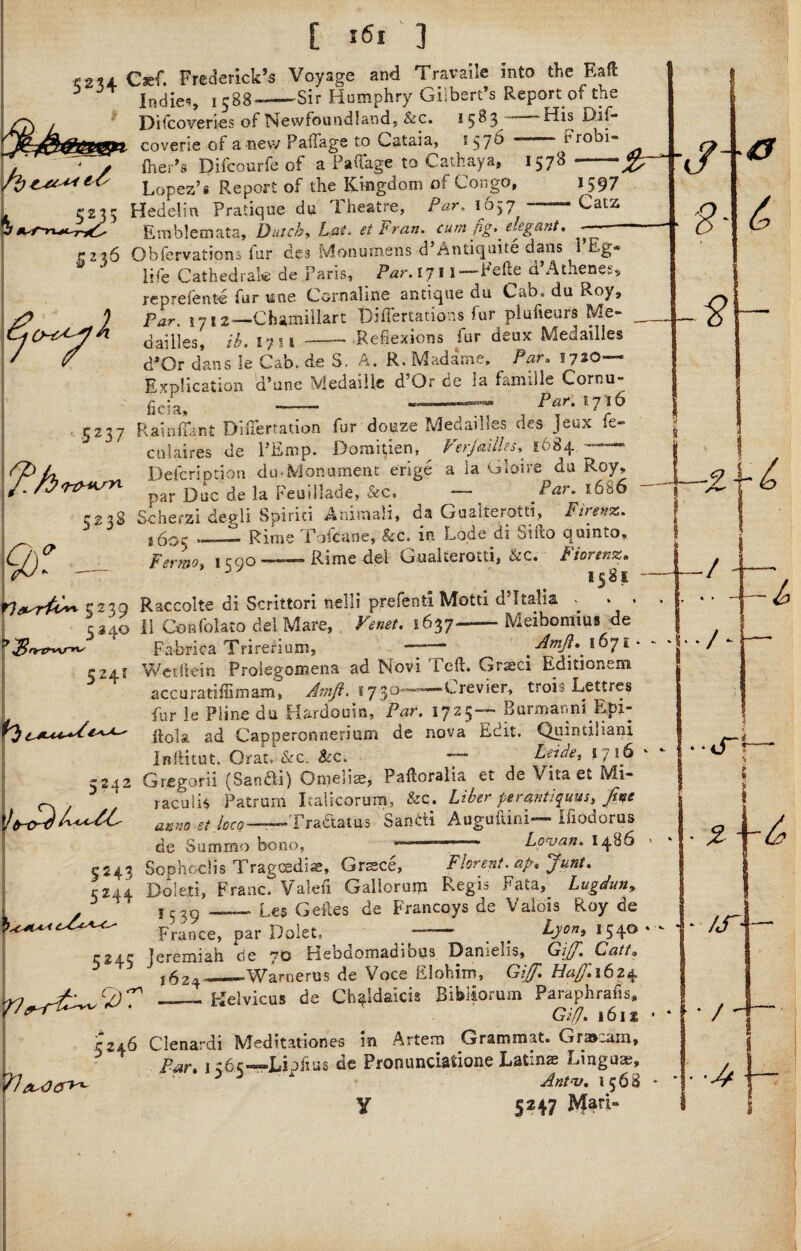 [ 161 ]
5234 Cæf. Frederick's Voyage and Travaile into the Eaſt
Indies, 1588——Sir Humphry Gilbert's Report of the
Diſcoveries of Newfoundland, &c. 1583——His Diſ-
coverie of a new Paſſage to Cataia, 1576——Frobi-
ſher's Diſcourſe of a Paſſage to Cathaya, 1578——
Lopez's Report of the Kingdom of Congo, 1597
5235 Hedelin Pratique du Theatre, Par. 1657——Catz
Emblemata, Dutch, Lat. et Fran. cum fig. elegant. ——
5236 Obſervations ſur des Monumens d'Antiquité dans l'Eg-
liſe Cathedrale de Paris, Par. 1711—Feſte d'Athenes,
repreſenté ſur une Cornaline antique du Cab. du Roy,
Par. 1712—Chamillart Diſſertations ſur pluſieurs Me-
dailles, ib. 1711——Reflexions ſur deux Medailles
d'Or dans le Cab. de S. A. R. Madame, Par. 1720—
Explication d'une Medaille d'Or de la famille Cornu-
ficia, —— —— Par. 1716
5237 Rainſſant Diſſertation ſur douze Medailles des Jeux ſe-
culaires de l'Emp. Domitien, Verſailles, 1684——
Deſcription du Monument erigé a la Gloire du Roy,
par Duc de la Feuillade, &c. — Par. 1686
5238 Scherzi degli Spiriti Animali, da Gualterotti, Firenz.
1605——Rime Toſcane, &c. in Lode di Siſto quinto,
Fermo, 1590——Rime del Gualterotti, &c. Fiorenz.
1581
5239 Raccolte di Scrittori nelli preſenti Motti d'Italia . . . .
5240 Il Conſolato del Mare, Venet. 1637——Meibomius de
Fabrica Trirerium, —— Amſt. 1671
5241 Wetſtein Prolegomena ad Novi Teſt. Græci Editionem
accuratiſſimam, Amſt. 1730——Crevier, trois Lettres
ſur le Pline du Hardouin, Par. 1725—Burmanni Epi-
ſtola ad Capperonnerium de nova Edit. Quintiliani
Inſtitut. Orat. &c. &c. — Leide, 1716
5242 Gregorii (Sancti) Omeliæ, Paſtoralia et de Vita et Mi-
raculis Patrum Italicorum, &c. Liber perantiquus, ſine
anno et loco——Tractatus Sancti Auguſtini—Iſiodorus
de Summo bono, —— Lovan. 1486
5243 Sophoclis Tragœdiæ, Græcé, Florent. ap. Junt.
5244 Doleti, Franc. Valeſi Gallorum Regis Fata, Lugdun,
1539——Les Geſtes de Francoys de Valois Roy de
France, par Dolet, —— Lyon, 1540
5245 Jeremiah de 70 Hebdomadibus Danielis, Giſſ. Catt.
1624——Warnerus de Voce Elohim, Giſſ. Haſſ. 1624
——Helvicus de Chaldaicis Bibliorum Paraphraſis,
Giſſ. 1612
5246 Clenardi Meditationes in Artem Grammat. Græcam,
Par. 1565—Lipſius de Pronunciatione Latinæ Linguæ,
Antv. 1568
Y 5247 Mari-